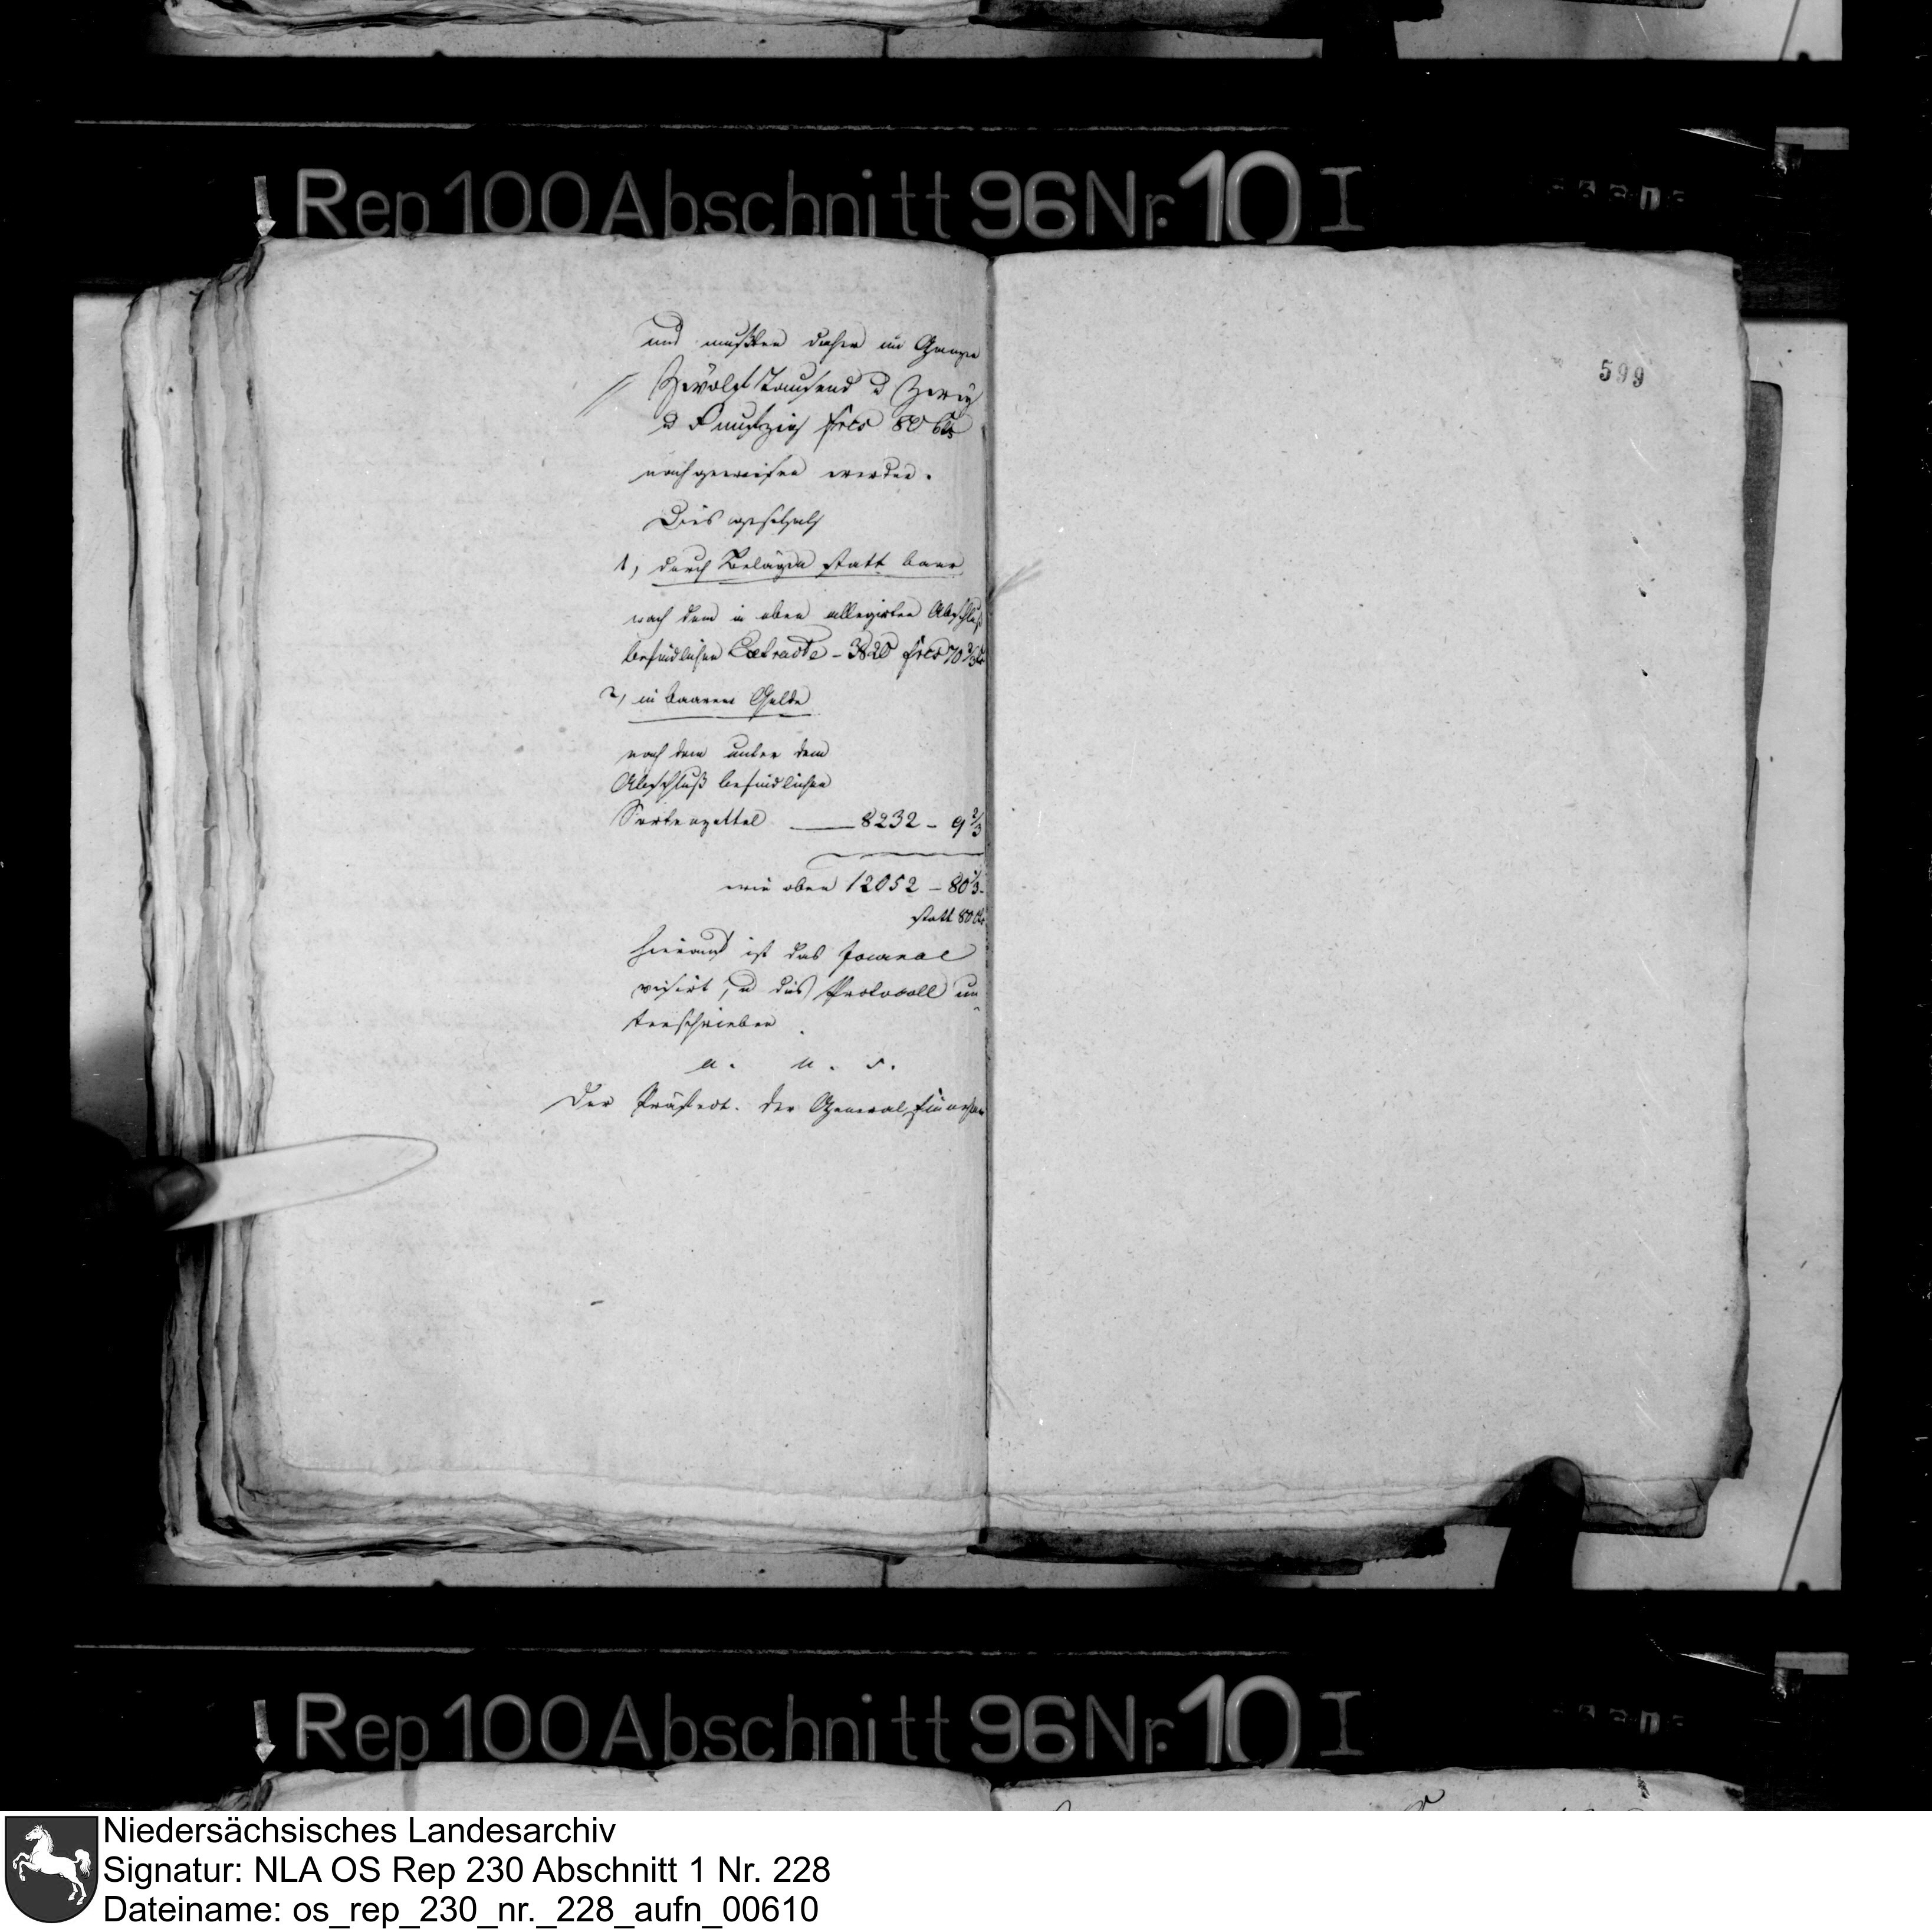 Rep 100 Abschnitt 96 Nr. 10 I
599
und mußten daher im Ganzen
Zwölf Tausend u Zwey
u Funfzig frcs 80 Cts
nachgewiesen werden.
Dies geschah
1, durch Beläge statt baar
nach dem in oben allegirten Abschluß
befindlichen Extracte - 3820 frcs 70 2/3 Cts
2, in baarem Gelde
nach dem unter dem
Abschluß befindlichen
Sortenzettel 8232 - 9 2/3
wie oben 12052 - 80 1/3
statt 80 Cts
Hierauf ist das Journal
visirt, u dies Protocoll un-
terschrieben.
a. u. s.
Der Präfect. Der General
Rep 100 Abschnitt 96 Nr. 10 I
Niedersächsisches Landesarchiv
Signatur: NLA OS Rep 230 Abschnitt 1 Nr. 228
Dateiname: os_rep_230_nr._228_aufn_00610